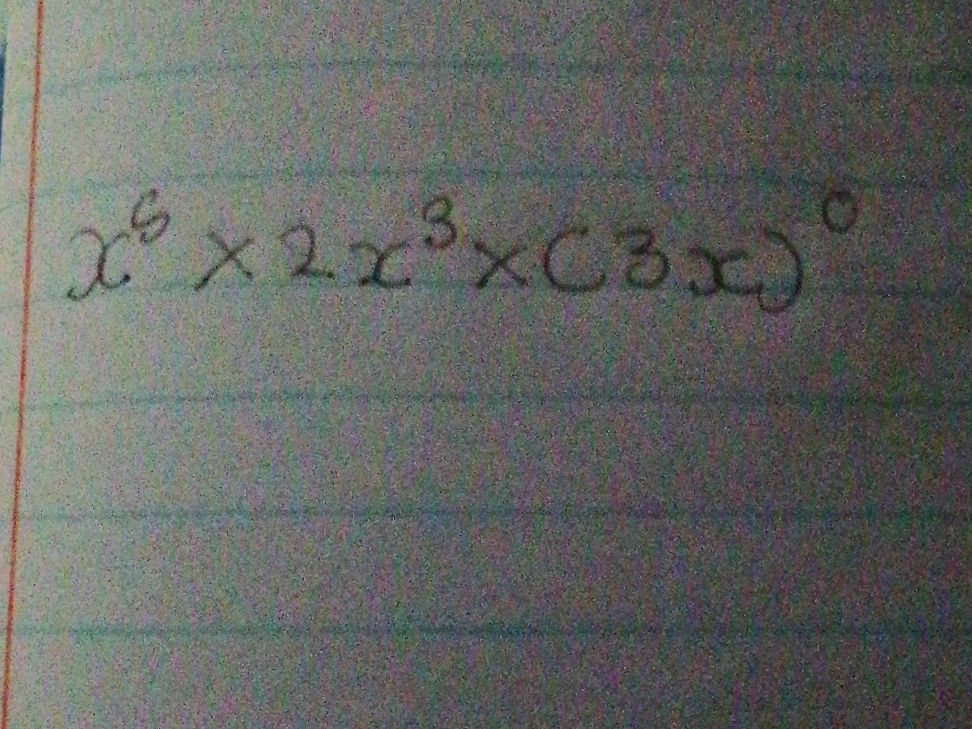 x⁵ × 2x³ × (3x)⁰